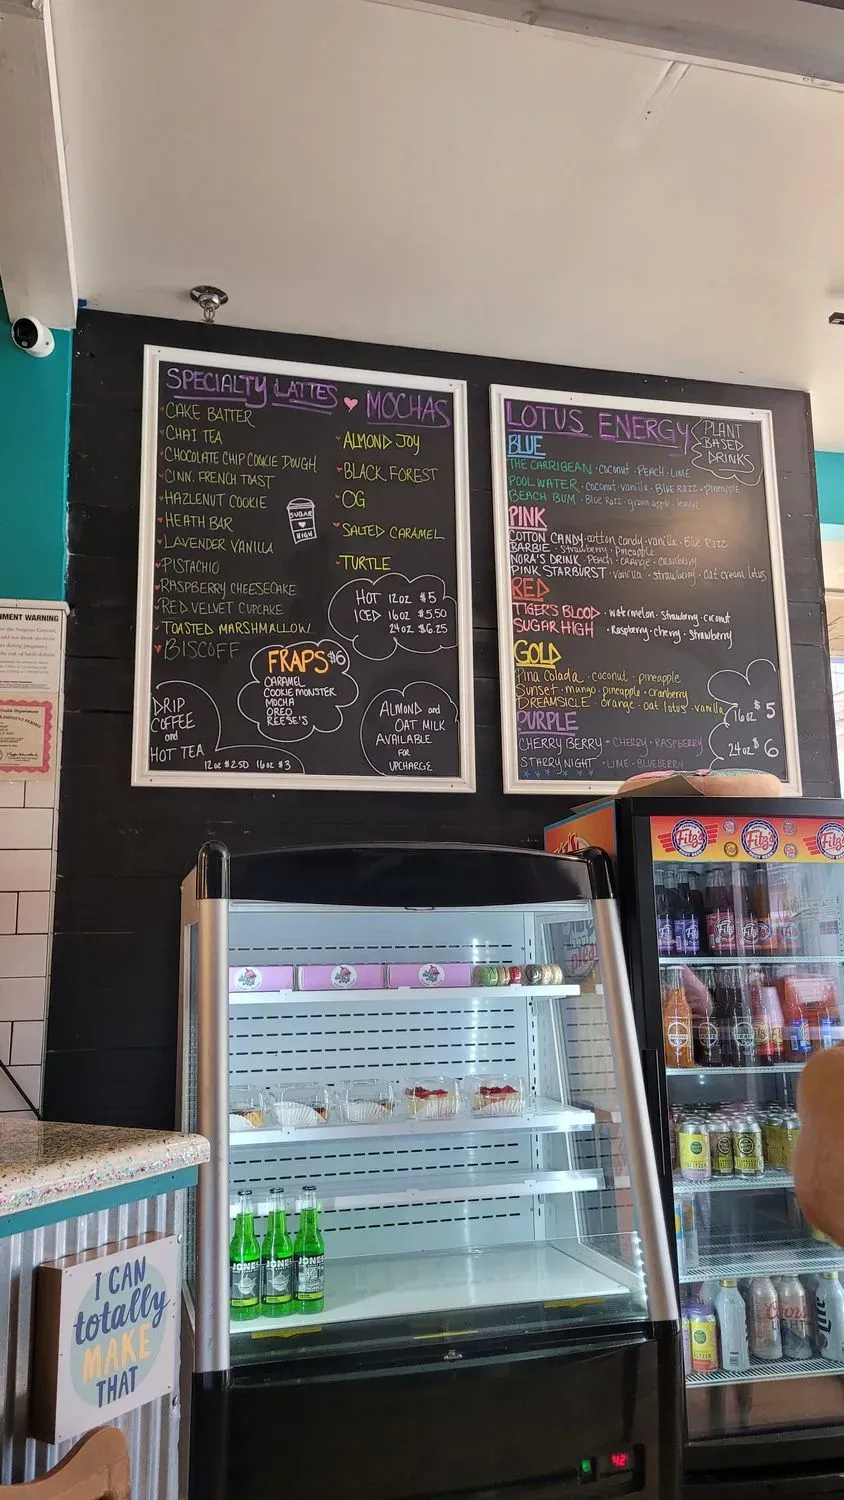 SPECIALTY LATTES
CAKE BATTER
CHAI TEA
CHOCOLATE CHIP COOKIE DOUGH
CINN. FRENCH TOAST
HAZLENUT COOKIE
HEATH BAR
LAVENDER VANILLA
PISTACHIO
RASPBERRY CHEESECAKE
RED VELVET CUPCAKE
TOASTED MARSHMALLOW
BISCOFF
SUGAR
HIGH
MOCHAS
ALMOND JOY
BLACK FOREST
OG
SALTED CARAMEL
TURTLE
HOT 12oz $5
ICED 16oz $5.50
24oz $6.25
FRAPS $6
CARAMEL
COOKIE MONSTER
MOCHA
OREO
REESE'S
DRIP
COFFEE
and
HOT TEA
12oz $2.50 16oz $3
ALMOND and
OAT MILK
AVAILABLE
FOR
UPCHARGE
LOTUS ENERGY
PLANT
BASED
DRINKS
BLUE
THE CARRIBEAN · coconut · PEACH · LIME
POOL WATER · coconut · vanilla · Blue Razz · pineapple
BEACH BUM · Blue Razz · green apple · lemon
PINK
COTTON CANDY · cotton candy · vanilla · Blue Razz
BARBIE · strawberry · pineapple
NORA'S DRINK · PEACH · orange · cranberry
PINK STARBURST · vanilla · strawberry · oat cream lotus
RED
TIGER'S BLOOD · watermelon · strawberry · coconut
SUGAR HIGH · Raspberry · cherry · strawberry
GOLD
Pina Colada · coconut · pineapple
Sunset · mango · pineapple · cranberry
DREAMSICLE · orange · oat lotus · vanilla
PURPLE
CHERRY BERRY - CHERRY · RASPBERRY
STARRY NIGHT · LIME · BLUEBERRY
16oz $5
24oz $6
Fitz's
Fitz's
Fitz's
JONES
JONES
JONES
Coors
LIGHT
Lite
I CAN
totally
MAKE
THAT
42